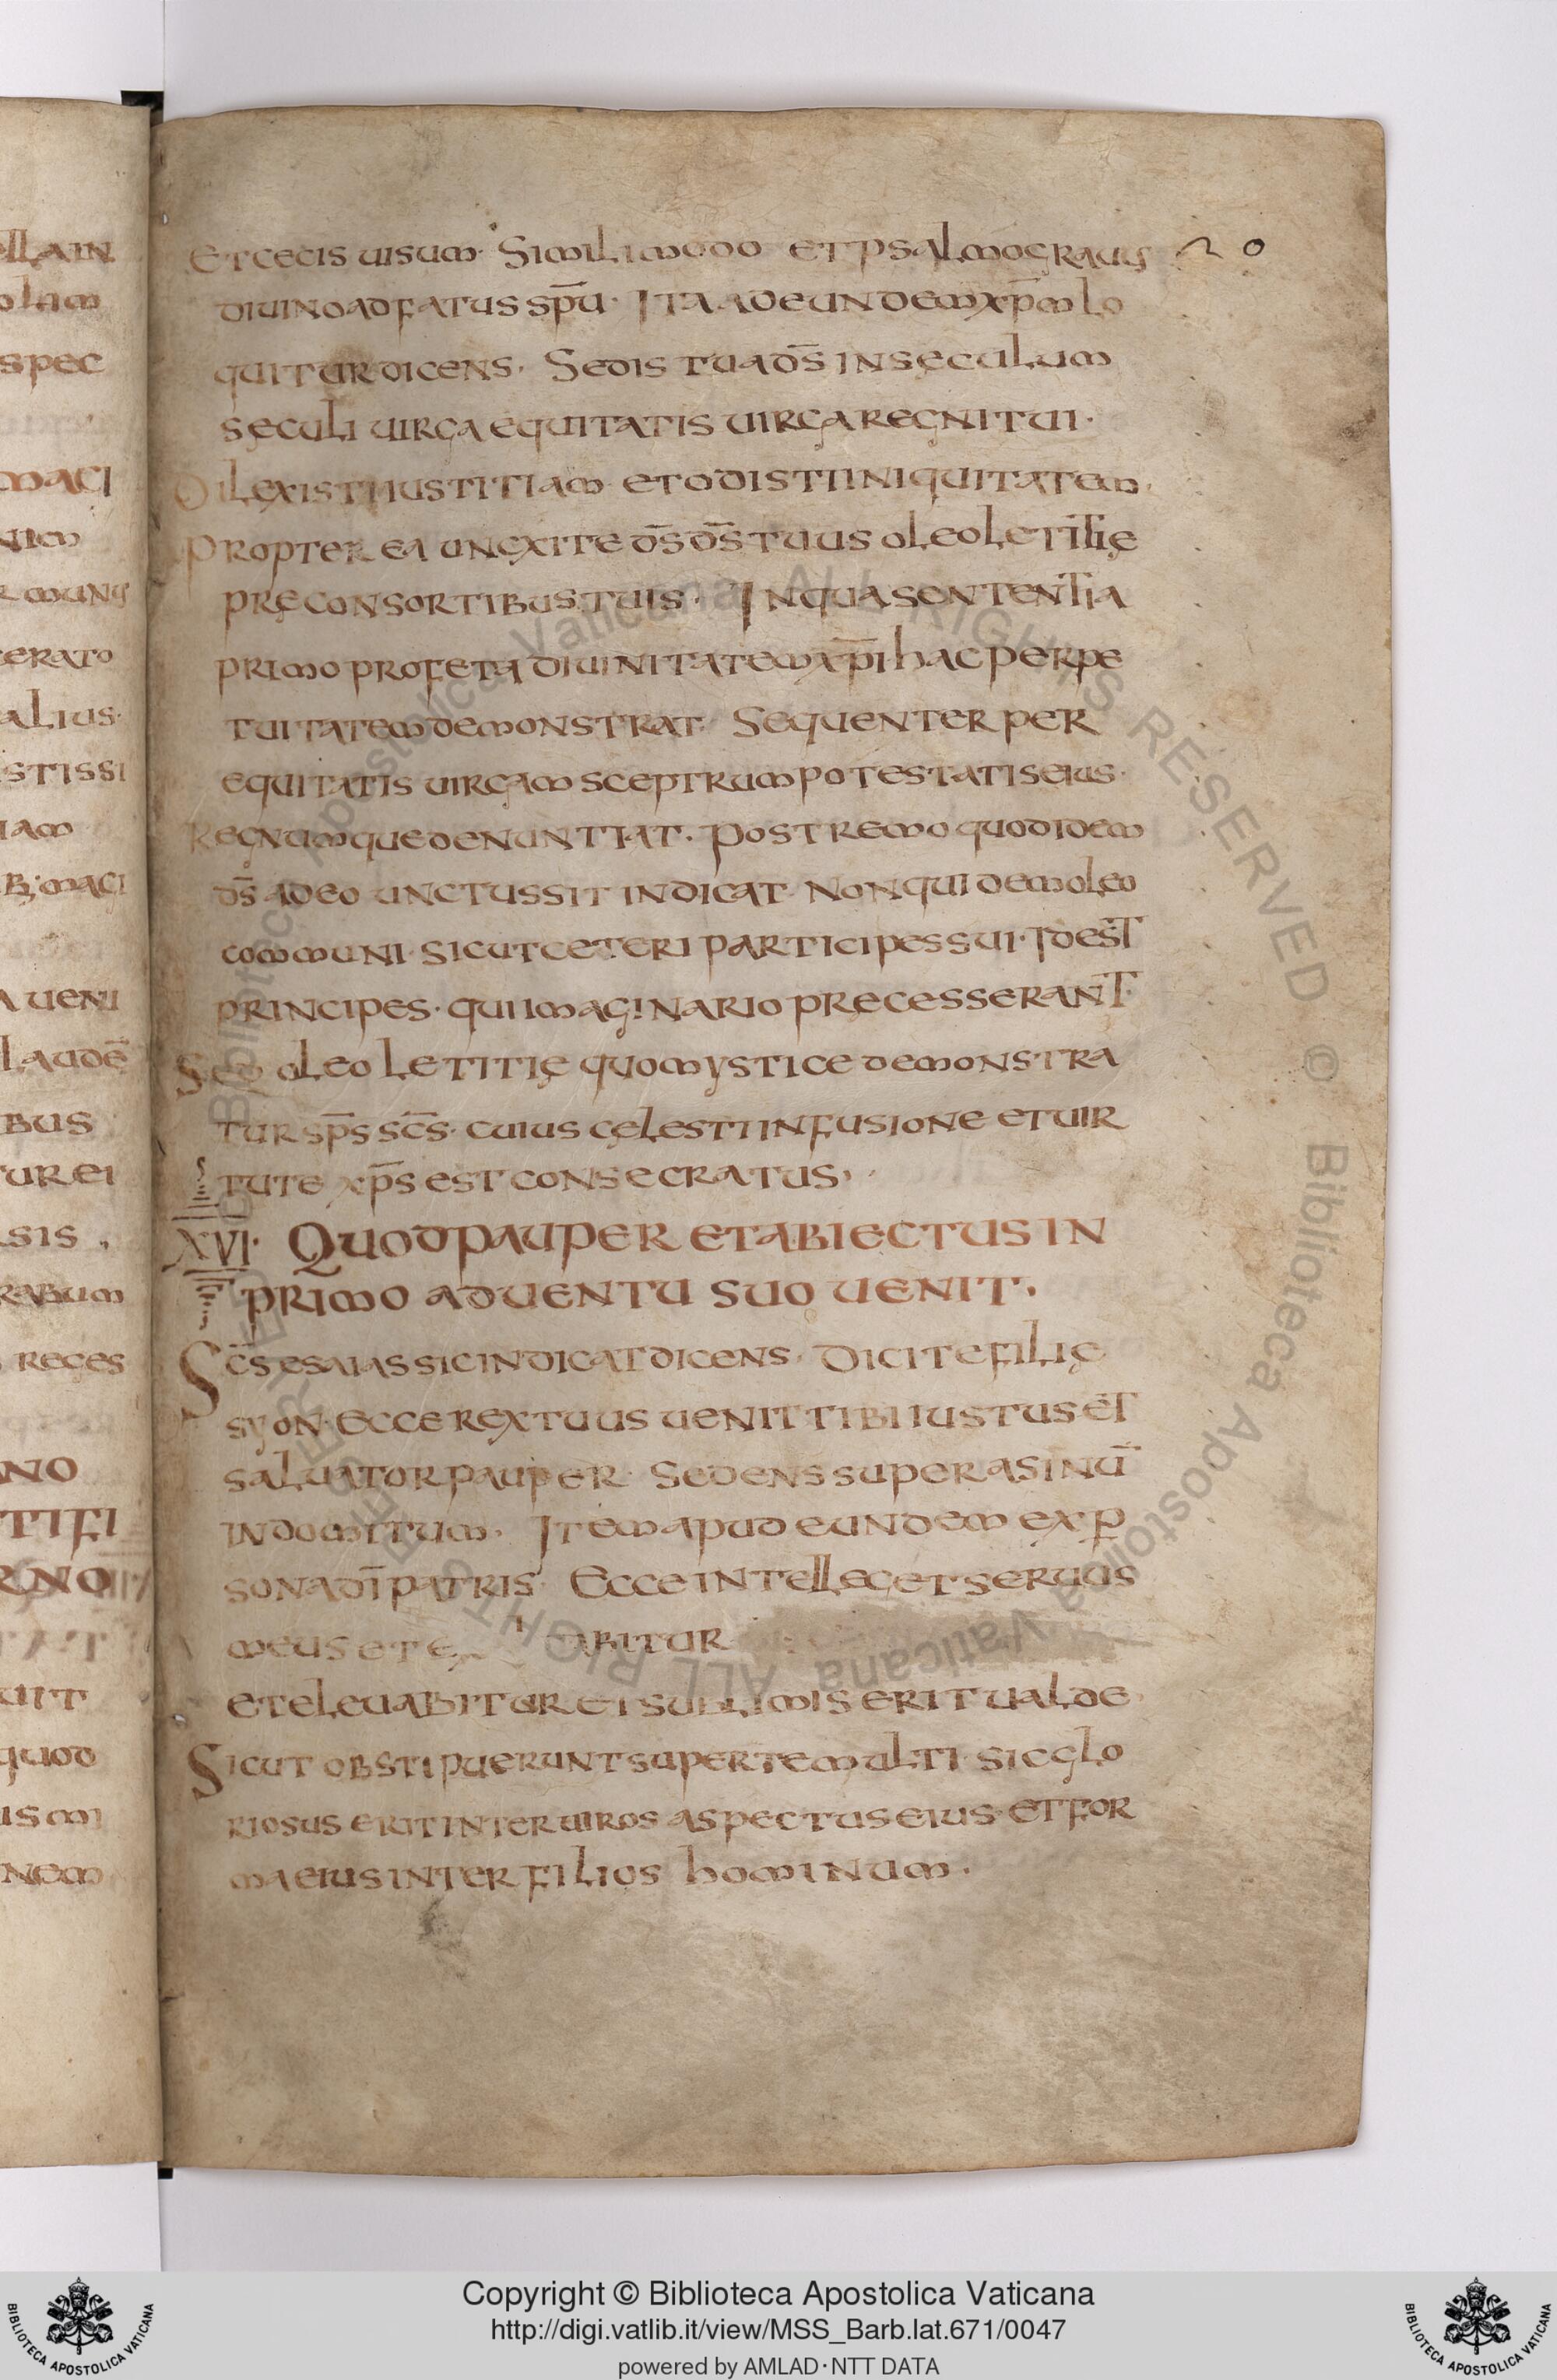 ET CECIS UISUM· SIMILI MODO ET PSALMOGRAUS
DIUINO ADFATUS SPŪ· ITA AD EUNDEM XP̄M LO
QUITUR DICENS· SEDIS TUA DS̄ IN SECULUM
SECULI UIRGA EQUITATIS UIRGA REGNI TUI·
DILEXISTI IUSTITIAM ET ODISTI INIQUITATEM·
PROPTEREA UNGXIT TE DS̄ DS̄ TUUS OLEO LETITIĘ
PRĘ CONSORTIBUS TUIS· IN QUA SENTENTIA
PRIMO PROFETA DIUINITATEM XP̄I HAC PERPE
TUITATEM DEMONSTRAT· SEQUENTER PER
EQUITATIS UIRGAM SCEPTRUM POTESTATIS EIUS·
REGNUMQUE DENUNTIAT· POSTREMO QUOD IDEM
DS̄ A DEO UNCTUS SIT INDICAT· NON QUIDEM OLEO
COMMUNI· SICUT CETERI PARTICIPES SUI· IDEST
PRINCIPES· QUI IMAGINARIO PRECESSERANT·
SED OLEO LETITIĘ QUO MYSTICE DEMONSTRA
TUR SP̄S SC̄S· CUIUS CĘLESTI INFUSIONE ET UIR
TUTE XP̄S EST CONSECRATUS·
XVI· QUOD PAUPER ET ABIECTUS IN
PRIMO ADUENTU SUO UENIT·
SC̄S ESAIAS SIC INDICAT DICENS· DICITE FILIĘ
SYON· ECCE REX TUUS UENIT TIBI IUSTUS ET
SALUATOR PAUPER· SEDENS SUPER ASINŪ
INDOMITUM· ITEM APUD EUNDEM EX P̱
SONA DĪ PATRIS· ECCE INTELLEGET SERUUS
MEUS ET TABITUR
ET ELEUABITUR ET SUBLIMIS ERIT UALDE
SICUT OBSTIPUERUNT SUPER TE MULTI· SIC GLO
RIOSUS ERIT INTER UIROS ASPECTUS EIUS· ET FOR
MA EIUS INTER FILIOS HOMINUM·
20
Copyright © Biblioteca Apostolica Vaticana
http://digi.vatlib.it/view/MSS_Barb.lat.671/0047
powered by AMLAD·NTT DATA